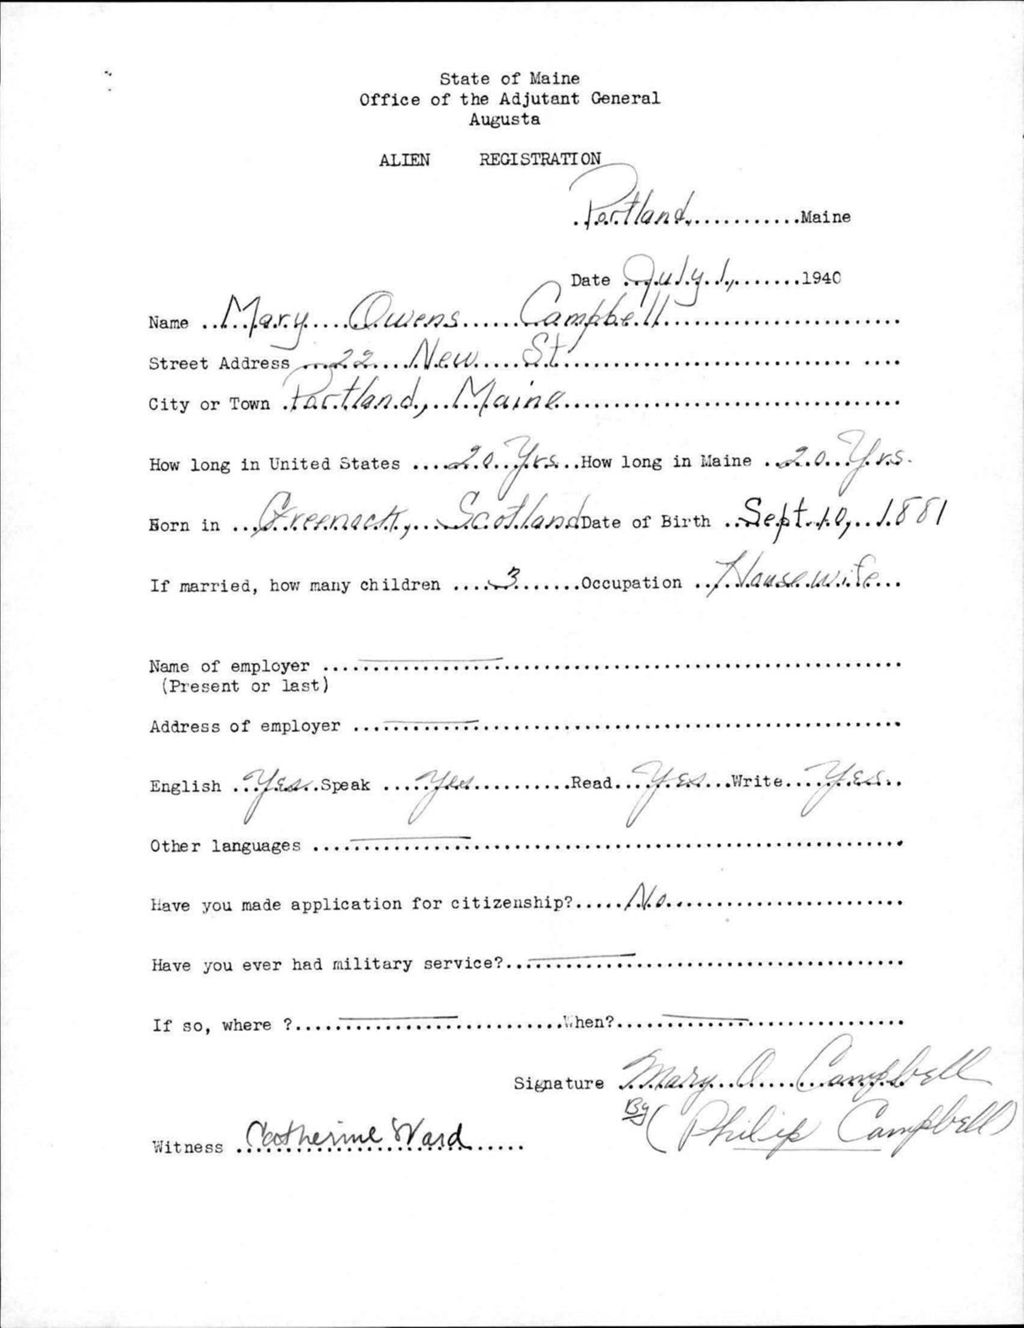 State of Maine
Office of the Adjutant General
Augusta
ALIEN REGISTRATION
Portland, Maine
Date July 1, 1940
Name Mary Owens Campbell
Street Address 22 New St.
City or Town Portland, Maine
How long in United States 20 Yrs. How long in Maine 20 Yrs.
Born in Greenock, Scotland Date of Birth Sept. 10, 1881
If married, how many children 3 Occupation Housewife
Name of employer
(Present or last)
Address of employer
English Yes Speak Yes Read Yes Write Yes
Other languages
Have you made application for citizenship? No
Have you ever had military service?
If so, where ? When?
Signature Mary O. Campbell
By (Philip Campbell)
Witness Catherine Ward